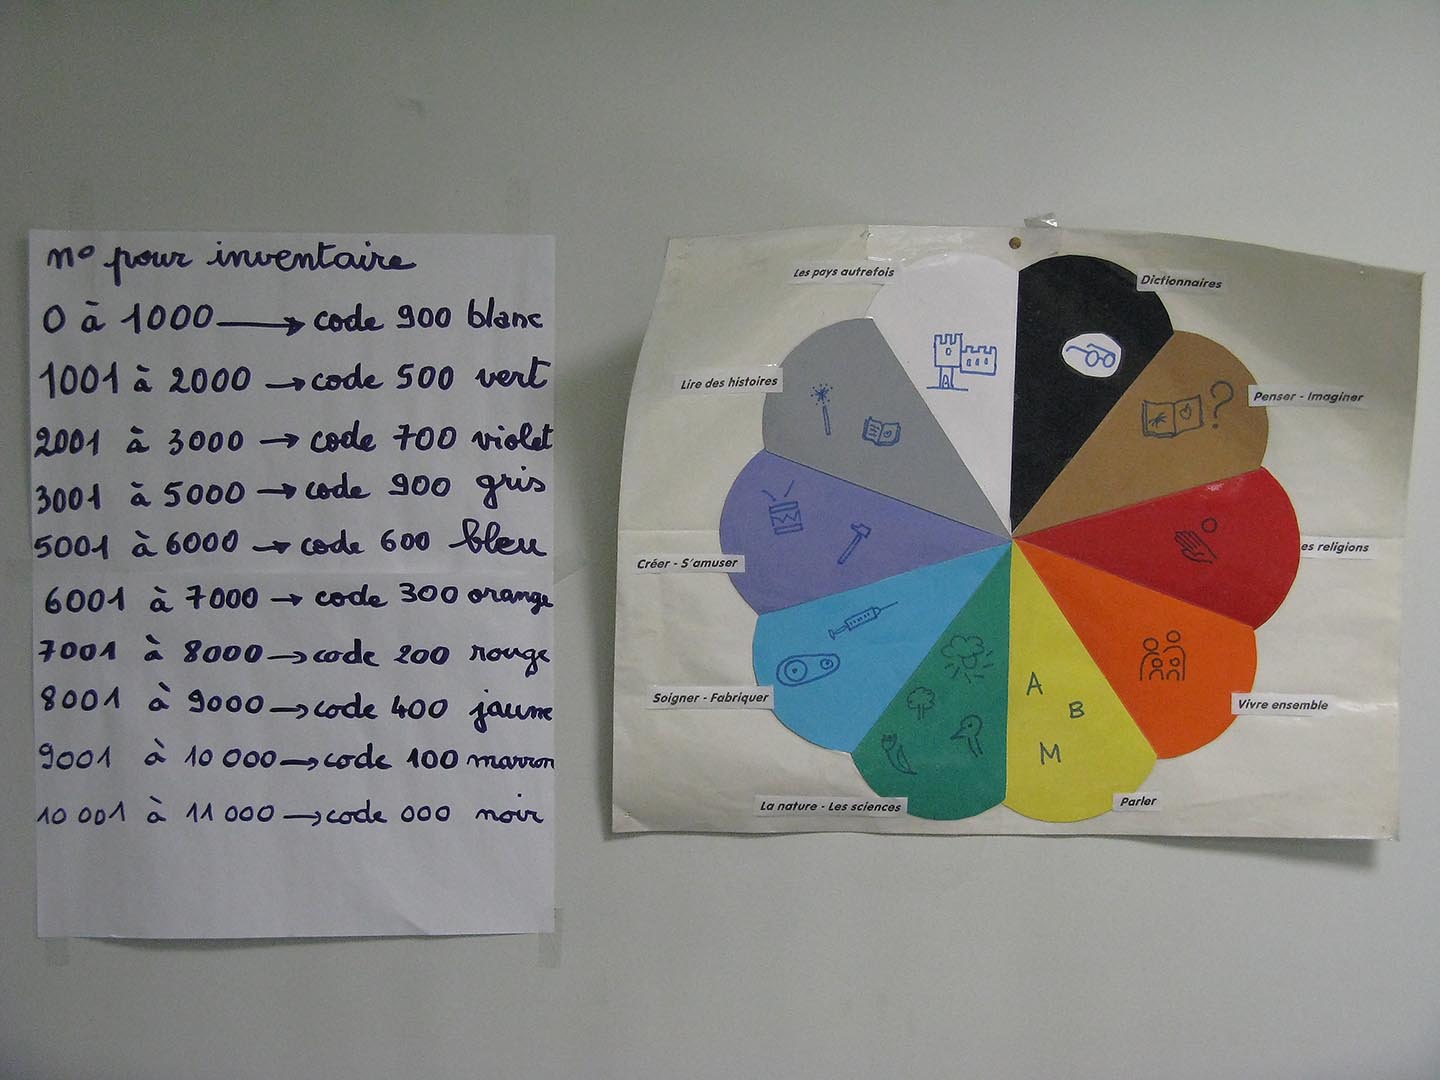 n° pour inventaire
0 à 1000 → code 900 blanc
1001 à 2000 → code 500 vert
2001 à 3000 → code 700 violet
3001 à 5000 → code 900 gris
5001 à 6000 → code 600 bleu
6001 à 7000 → code 300 orange
7001 à 8000 → code 200 rouge
8001 à 9000 → code 400 jaune
9001 à 10 000 → code 100 marron
10 001 à 11 000 → code 000 noir
Les pays autrefois
Dictionnaires
Lire des histoires
Penser - Imaginer
?
es religions
Créer - S'amuser
Soigner - Fabriquer
Vivre ensemble
A
B
M
La nature - Les sciences
Parler